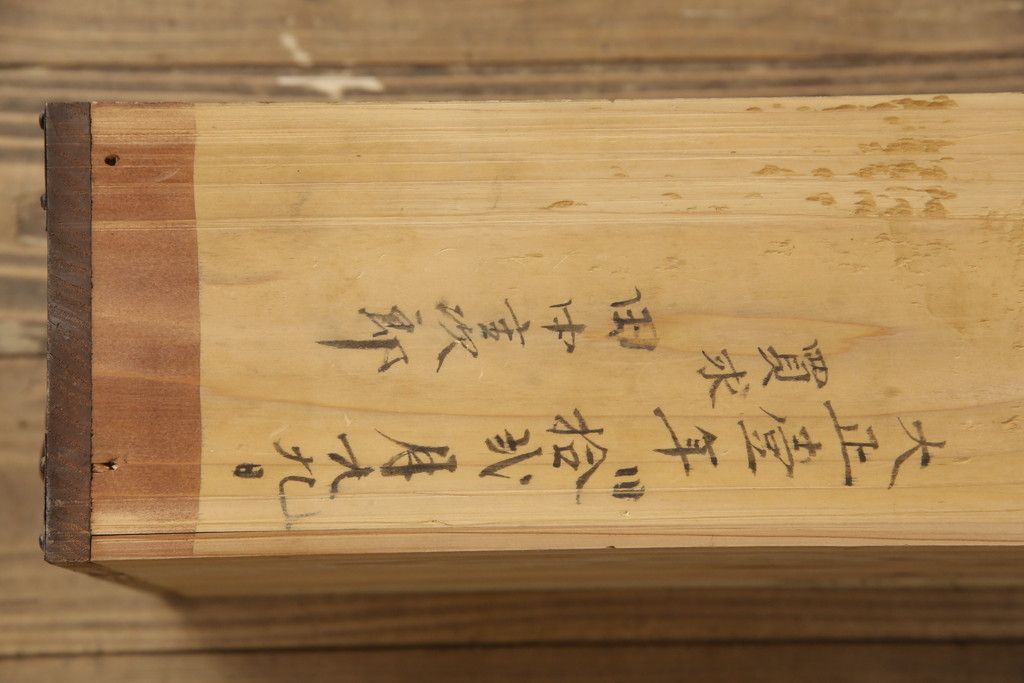 大正壹年拾弐月九日
買求
田中吉次郎